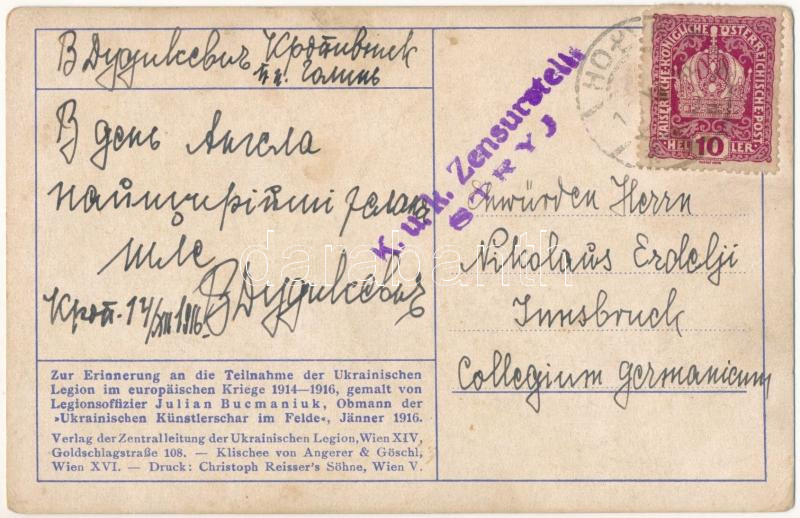 В Дудикевич Кропивник
п. п. Голинь
В день Ангела
найщирійші желаня
шле
В Дудикевич
Кроп. 17/XII 1916.
Zur Erinnerung an die Teilnahme der Ukrainischen
Legion im europäischen Kriege 1914—1916, gemalt von
Legionsoffizier Julian Bucmaniuk, Obmann der
»Ukrainischen Künstlerschar im Felde«, Jänner 1916.
Verlag der Zentralleitung der Ukrainischen Legion, Wien XIV,
Goldschlagstraße 108. — Klischee von Angerer & Göschl,
Wien XVI. — Druck: Christoph Reisser's Söhne, Wien V.
K. u. k. Zensurstelle
STRYJ
KAISERLICHE KÖNIGLICHE ÖSTERREICHISCHE POST
10
HELLER
Hochwürden Herrn
Nikolaus Erdelji
Innsbruck
Collegium germanicum
darabanth